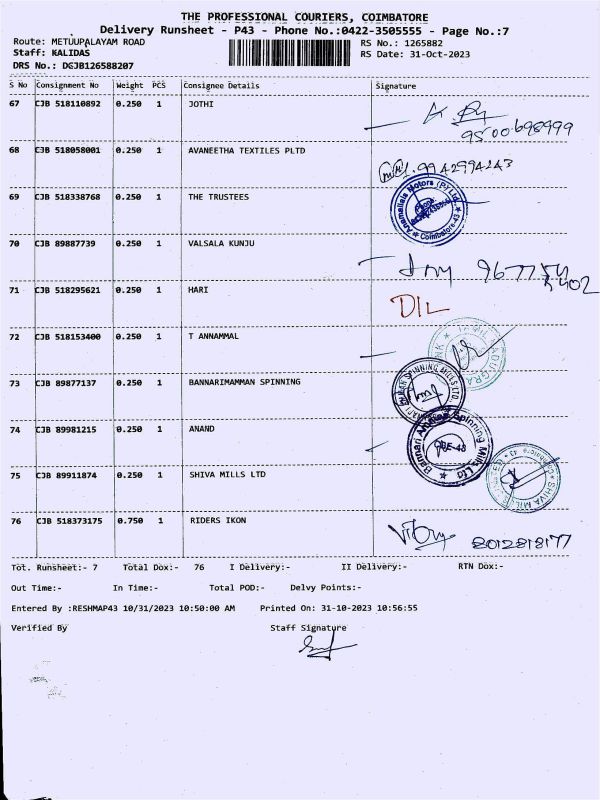 THE PROFESSIONAL COURIERS, COIMBATORE
Delivery Runsheet - P43 - Phone No.:0422-3505555 - Page No.:7
Route: METUUPALAYAM ROAD RS No.: 1265882
Staff: KALIDAS RS Date: 31-Oct-2023
DRS No.: DCJB126588207
S No Consignment No Weight PCS Consignee Details Signature
67 CJB 518110892 0.250 1 JOTHI
9500698999
68 CJB 518058001 0.250 1 AVANEETHA TEXTILES PLTD
9942994243
69 CJB 518338768 0.250 1 THE TRUSTEES
Anamallais Motors (P) Ltd.
Coimbatore-43
70 CJB 89887739 0.250 1 VALSALA KUNJU
71 CJB 518295621 0.250 1 HARI
D/L
72 CJB 518153400 0.250 1 T ANNAMMAL
73 CJB 89877137 0.250 1 BANNARIMAMMAN SPINNING
74 CJB 89981215 0.250 1 ANAND
Bannari Amman Spinning Mills Ltd
CBE-43
75 CJB 89911874 0.250 1 SHIVA MILLS LTD
SHIVA MILLS LIMITED
76 CJB 518373175 0.750 1 RIDERS IKON
8012818177
Tot. Runsheet:- 7 Total Dox:- 76 I Delivery:- II Delivery:- RTN Dox:-
Out Time:- In Time:- Total POD:- Delvy Points:-
Entered By :RESHMAP43 10/31/2023 10:50:00 AM Printed On: 31-10-2023 10:56:55
Verified By Staff Signature